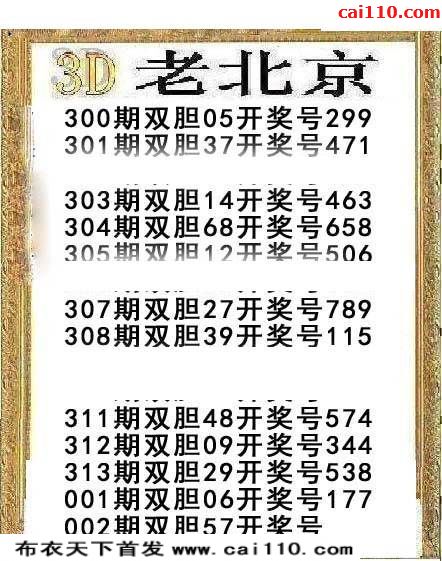 cai110.com
3D 老北京
300期双胆05开奖号299
301期双胆37开奖号471
303期双胆14开奖号463
304期双胆68开奖号658
305期双胆12开奖号506
307期双胆27开奖号789
308期双胆39开奖号115
311期双胆48开奖号574
312期双胆09开奖号344
313期双胆29开奖号538
001期双胆06开奖号177
002期双胆57开奖号
布衣天下首发 www.cai110.com